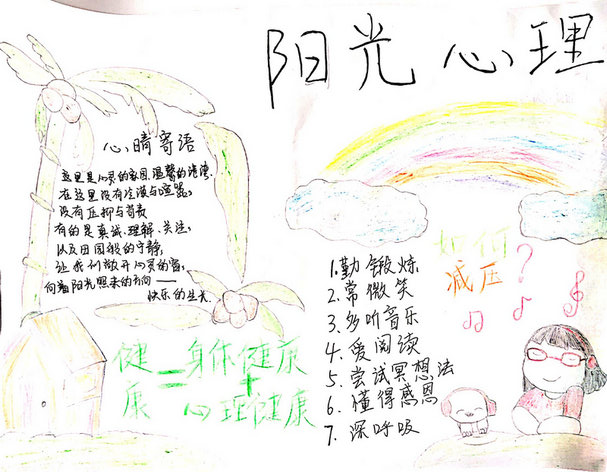 阳光心理
心晴寄语
这里是心灵的家园,温馨的港湾,
在这里没有冷漠与喧嚣,
没有压抑与苛责
有的是真诚、理解、关注,
以及田园般的宁静,
让我们敞开心灵的窗,
向着阳光照来的方向——
快乐的生长
健康=身体健康
+
心理健康
如何
减压?
1.勤锻炼
2.常微笑
3.多听音乐
4.爱阅读
5.尝试冥想法
6.懂得感恩
7.深呼吸